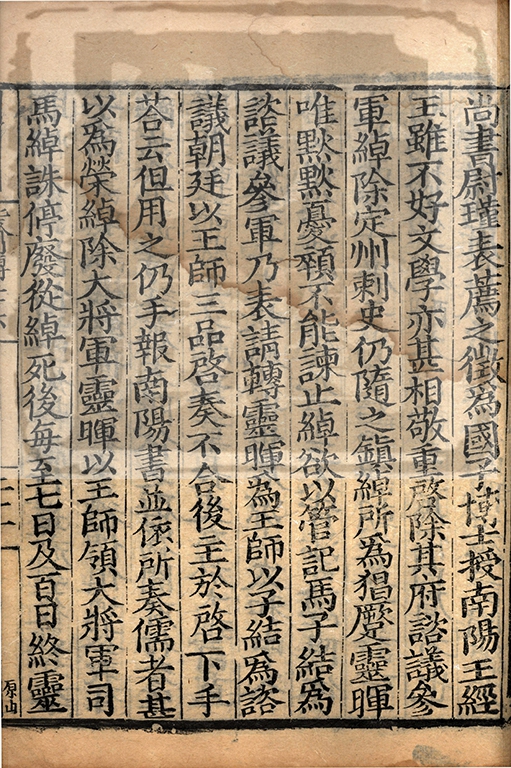 尚書尉瑾表薦之徵為國子博士授南陽王經
王雖不好文學亦甚相敬重啓除其府諮議參
軍綽除定州刺史仍隨之鎮綽所為猖蹷靈暉
唯默默憂顇不能諫止綽欲以管記馬子結為
諮議參軍乃表請轉靈暉為王師以子結為諮
議朝廷以王師三品啓奏不合後主於啓下手
荅云但用之仍手報南陽書並依所奏儒者甚
以為榮綽除大將軍靈暉以王師領大將軍司
馬綽誅停廢從綽死後每至七日及百日終靈
原山